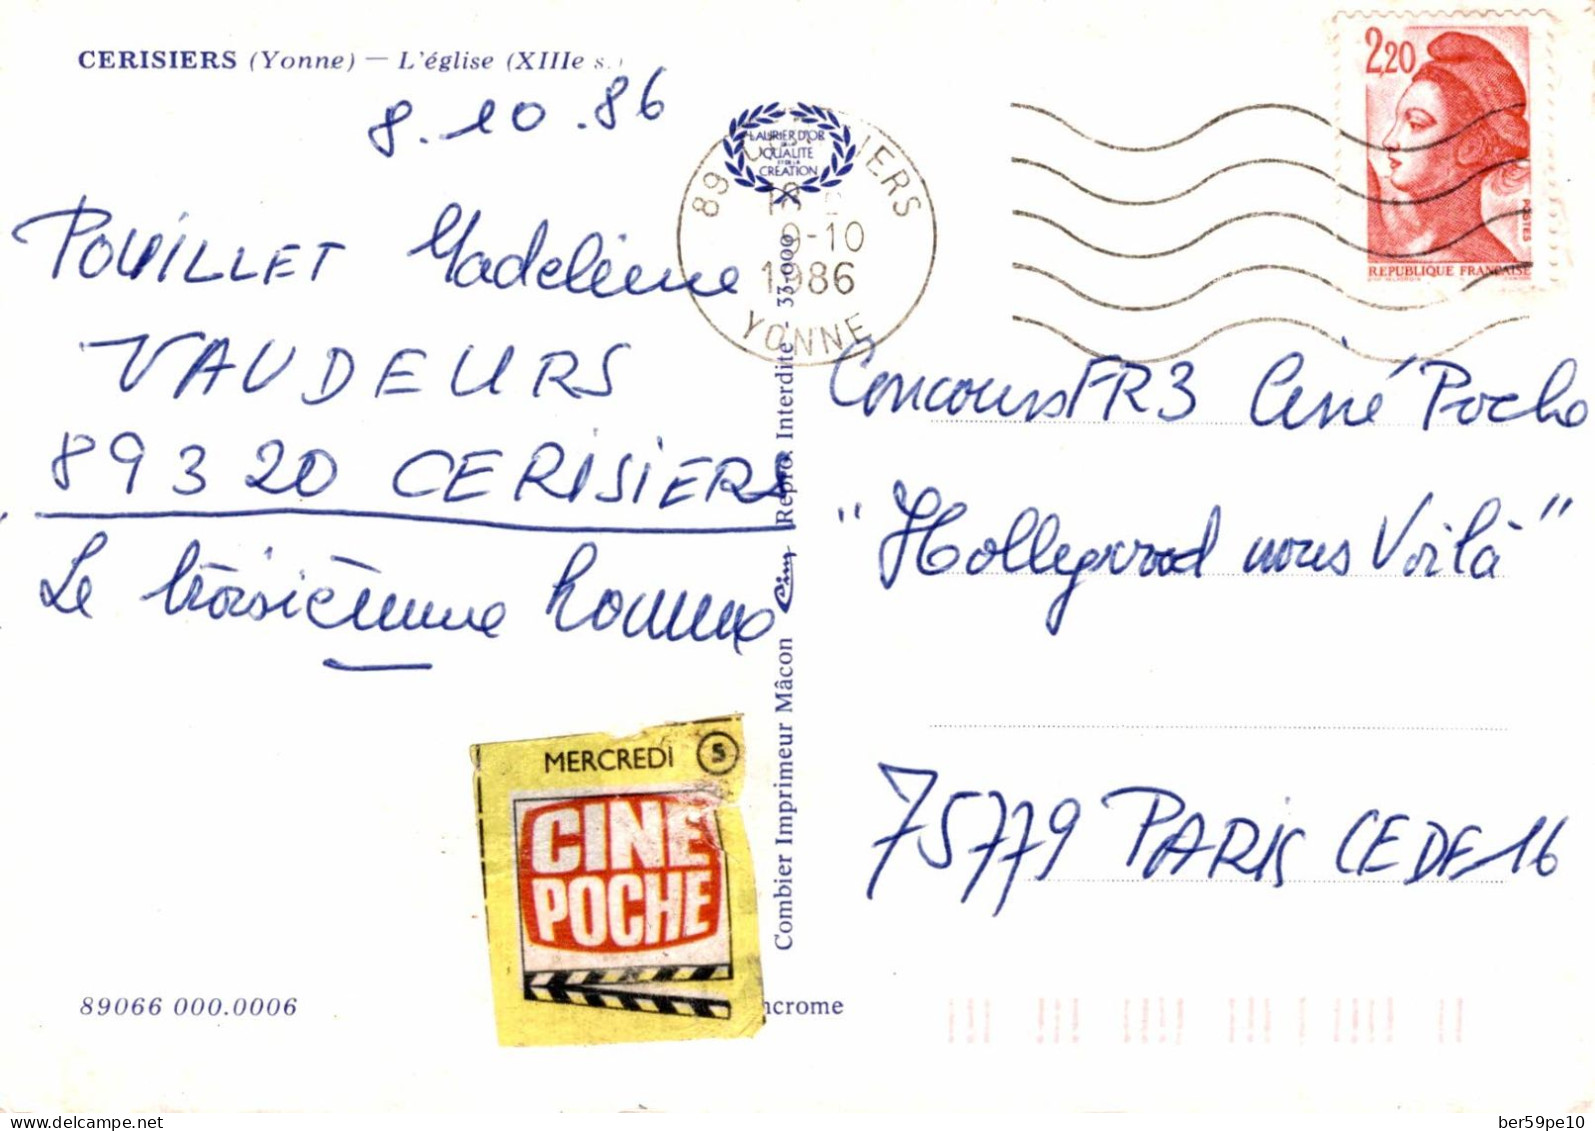 CERISIERS (Yonne) — L'église (XIIIe s.)
8.10.86
POUILLET Madeleine
VAUDEURS
89320 CERISIERS
Le troisième homme
MERCREDI 5
CINE
POCHE
89066 000.0006
ncrome
LAURIER D'OR
DE LA
QUALITE
ET DE LA
CREATION
89 IERS
9-10
1986
YONNE
Combier Imprimeur Mâcon Cim Repro. Interdite - 33-000
2,20
POSTES
REPUBLIQUE FRANCAISE
Concours FR3 Ciné Poche
"Hollywood nous Voilà"
75779 PARIS CEDE 16
Delcampe.net
ber59pe10